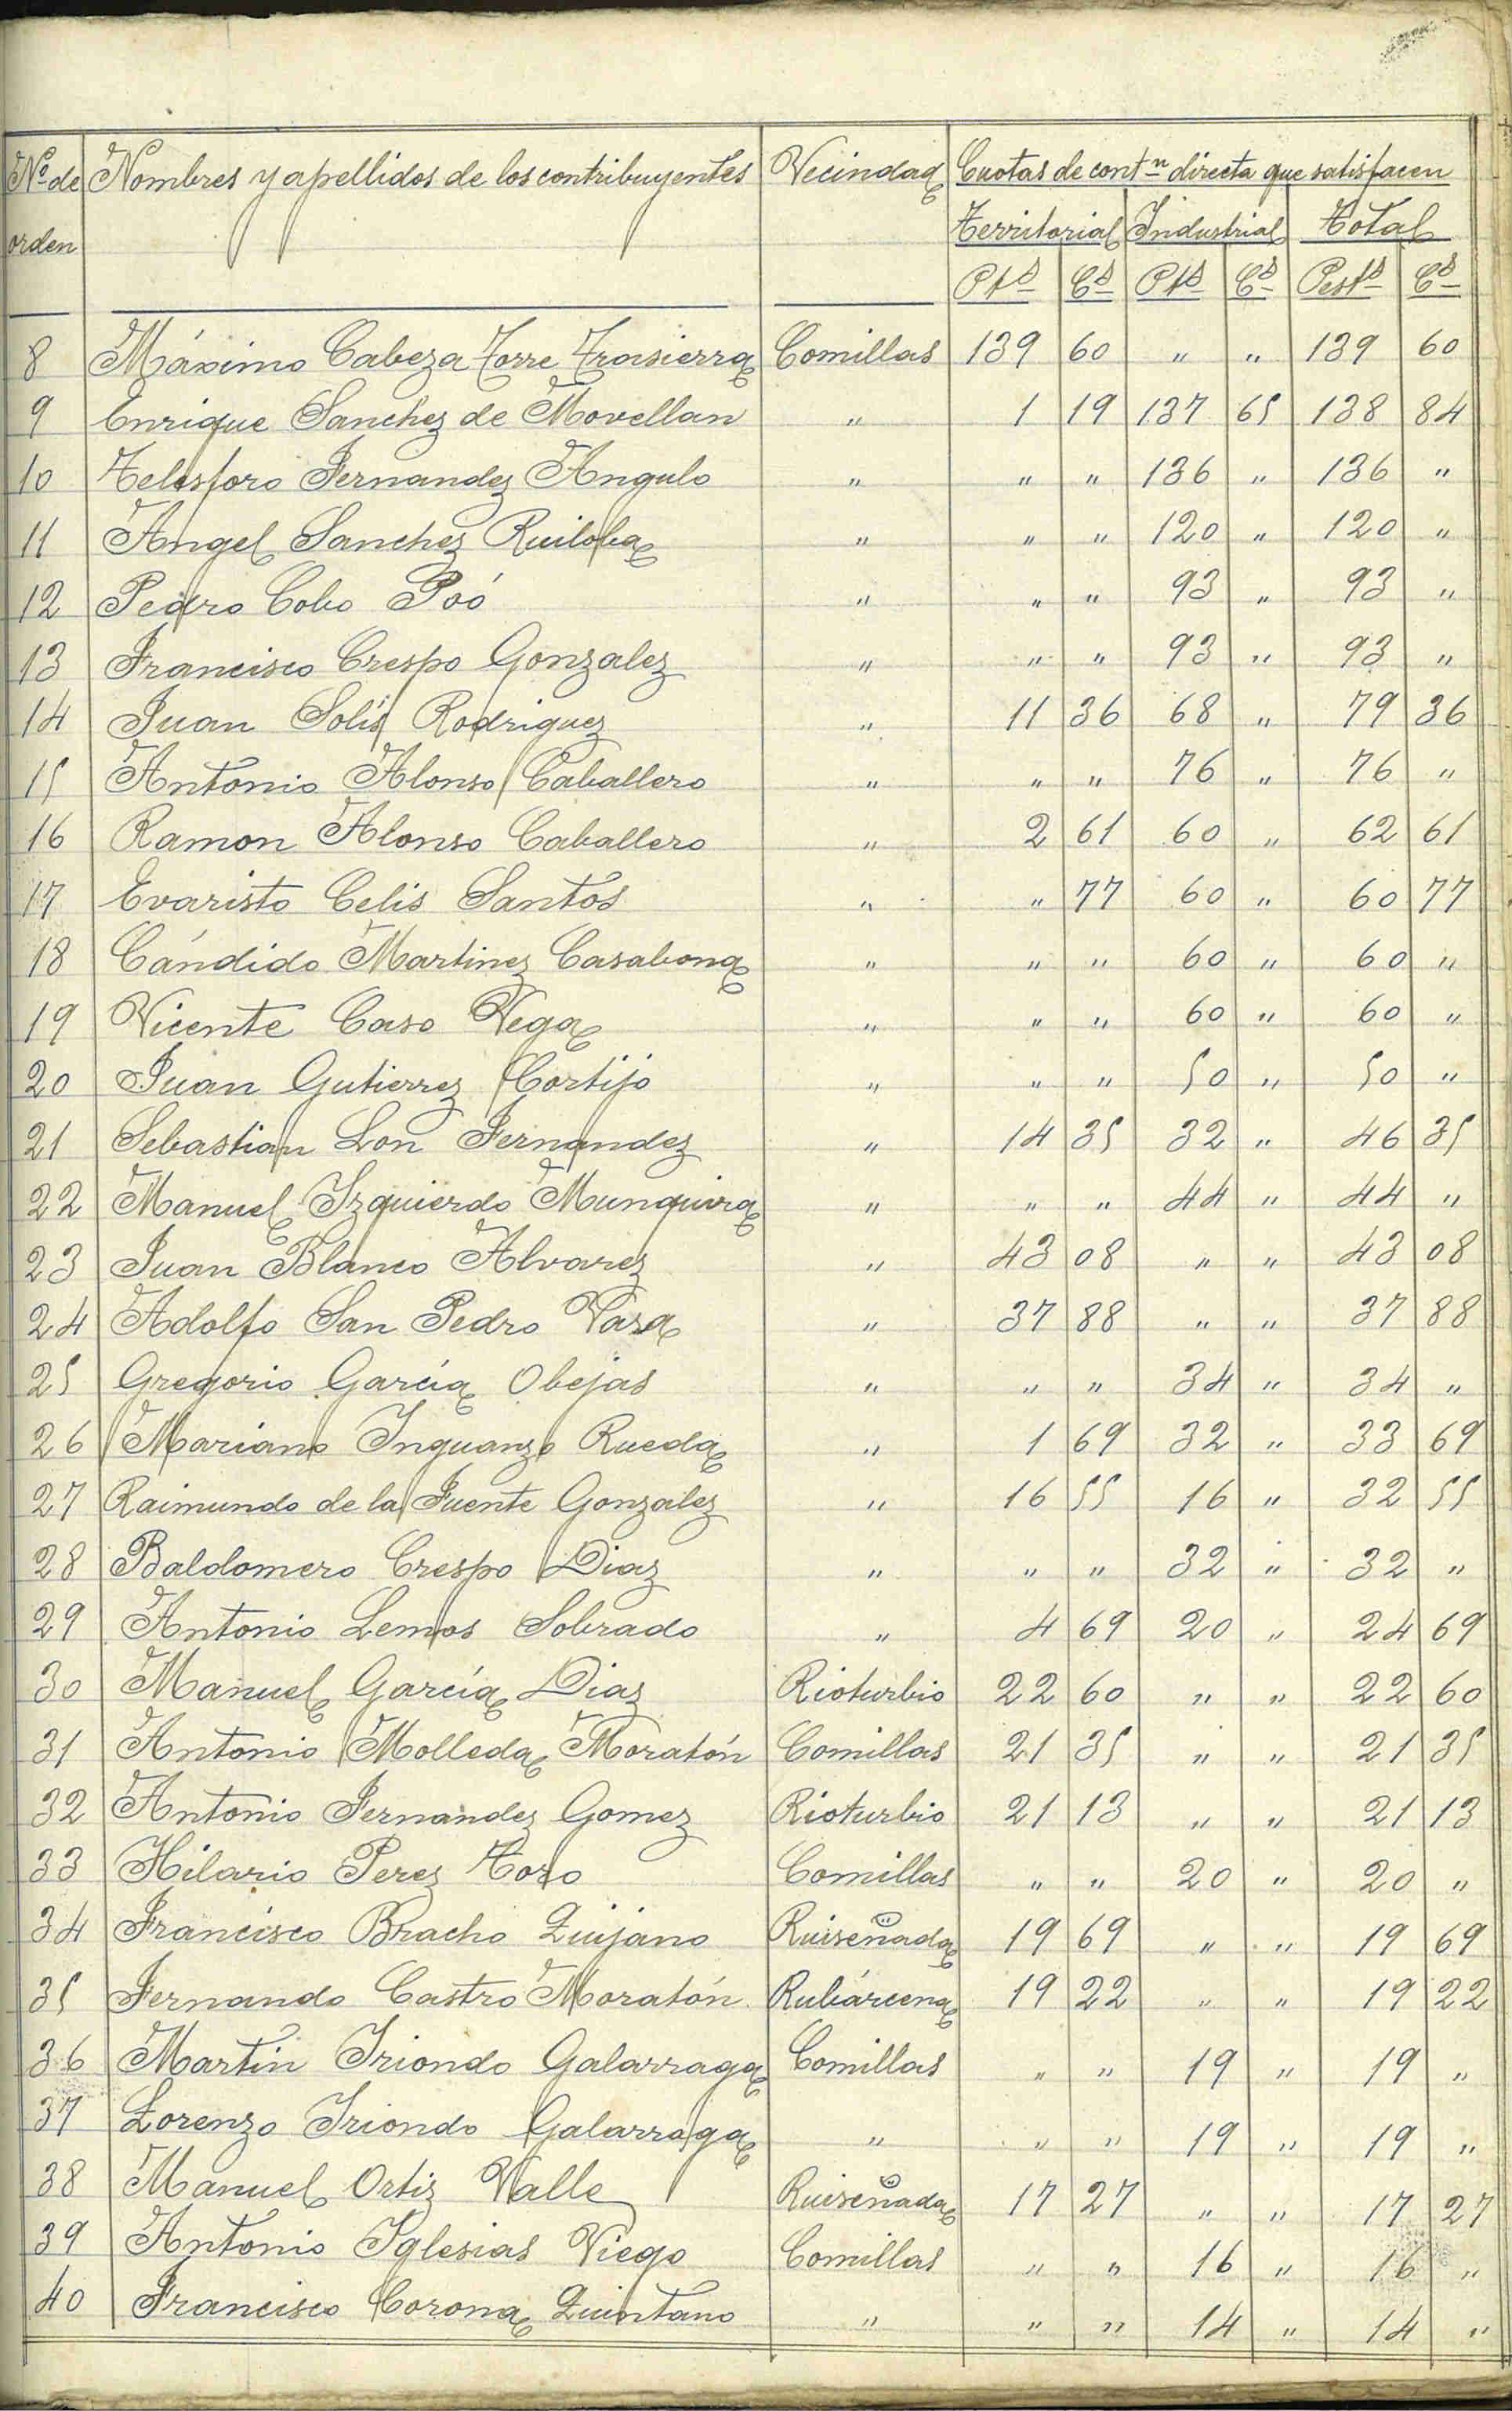 Nº de Nombres y apellidos de los contribuyentes Vecindad Cuotas de contn directa que satisfacen
orden Territorial Industrial Total
Pts Cs Pts Cs Pests Cs
8 Máximo Cabeza Torre Trasierra Comillas 139 60 " " 139 60
9 Enrique Sanchez de Movellan " 1 19 137 65 138 84
10 Telesforo Fernandez Angulo " " " 136 " 136 "
11 Angel Sanchez Ruiloba " " " 120 " 120 "
12 Pedro Cobo Póo " " " 93 " 93 "
13 Francisco Crespo Gonzalez " " " 93 " 93 "
14 Juan Solís Rodriguez " 11 36 68 " 79 36
15 Antonio Alonso Caballero " " " 76 " 76 "
16 Ramon Alonso Caballero " 2 61 60 " 62 61
17 Evaristo Celis Santos " " 77 60 " 60 77
18 Cándido Martinez Casabona " " " 60 " 60 "
19 Vicente Caso Vega " " " 60 " 60 "
20 Juan Gutierrez Cortijo " " " 50 " 50 "
21 Sebastian Lon Fernandez " 14 35 32 " 46 35
22 Manuel Izquierdo Munquira " " " 44 " 44 "
23 Juan Blanco Alvarez " 43 08 " " 43 08
24 Adolfo San Pedro Vara " 37 88 " " 37 88
25 Gregorio García Obejas " " " 34 " 34 "
26 Mariano Inguanzo Rueda " 1 69 32 " 33 69
27 Raimundo de la Fuente Gonzalez " 16 55 16 " 32 55
28 Baldomero Crespo Diaz " " " 32 " 32 "
29 Antonio Lemos Sobrado " 4 69 20 " 24 69
30 Manuel García Diaz Rioturbio 22 60 " " 22 60
31 Antonio Molleda Moratón Comillas 21 35 " " 21 35
32 Antonio Fernandez Gomez Rioturbio 21 13 " " 21 13
33 Hilario Perez Toro Comillas " " 20 " 20 "
34 Francisco Bracho Quijano Ruiseñada 19 69 " " 19 69
35 Fernando Castro Moratón Rubárcena 19 22 " " 19 22
36 Martin Iriondo Galarraga Comillas " " 19 " 19 "
37 Lorenzo Iriondo Galarraga " " " 19 " 19 "
38 Manuel Ortiz Valle Ruiseñada 17 27 " " 17 27
39 Antonio Iglesias Viego Comillas " " 16 " 16 "
40 Francisco Corona Quintano " " " 14 " 14 "